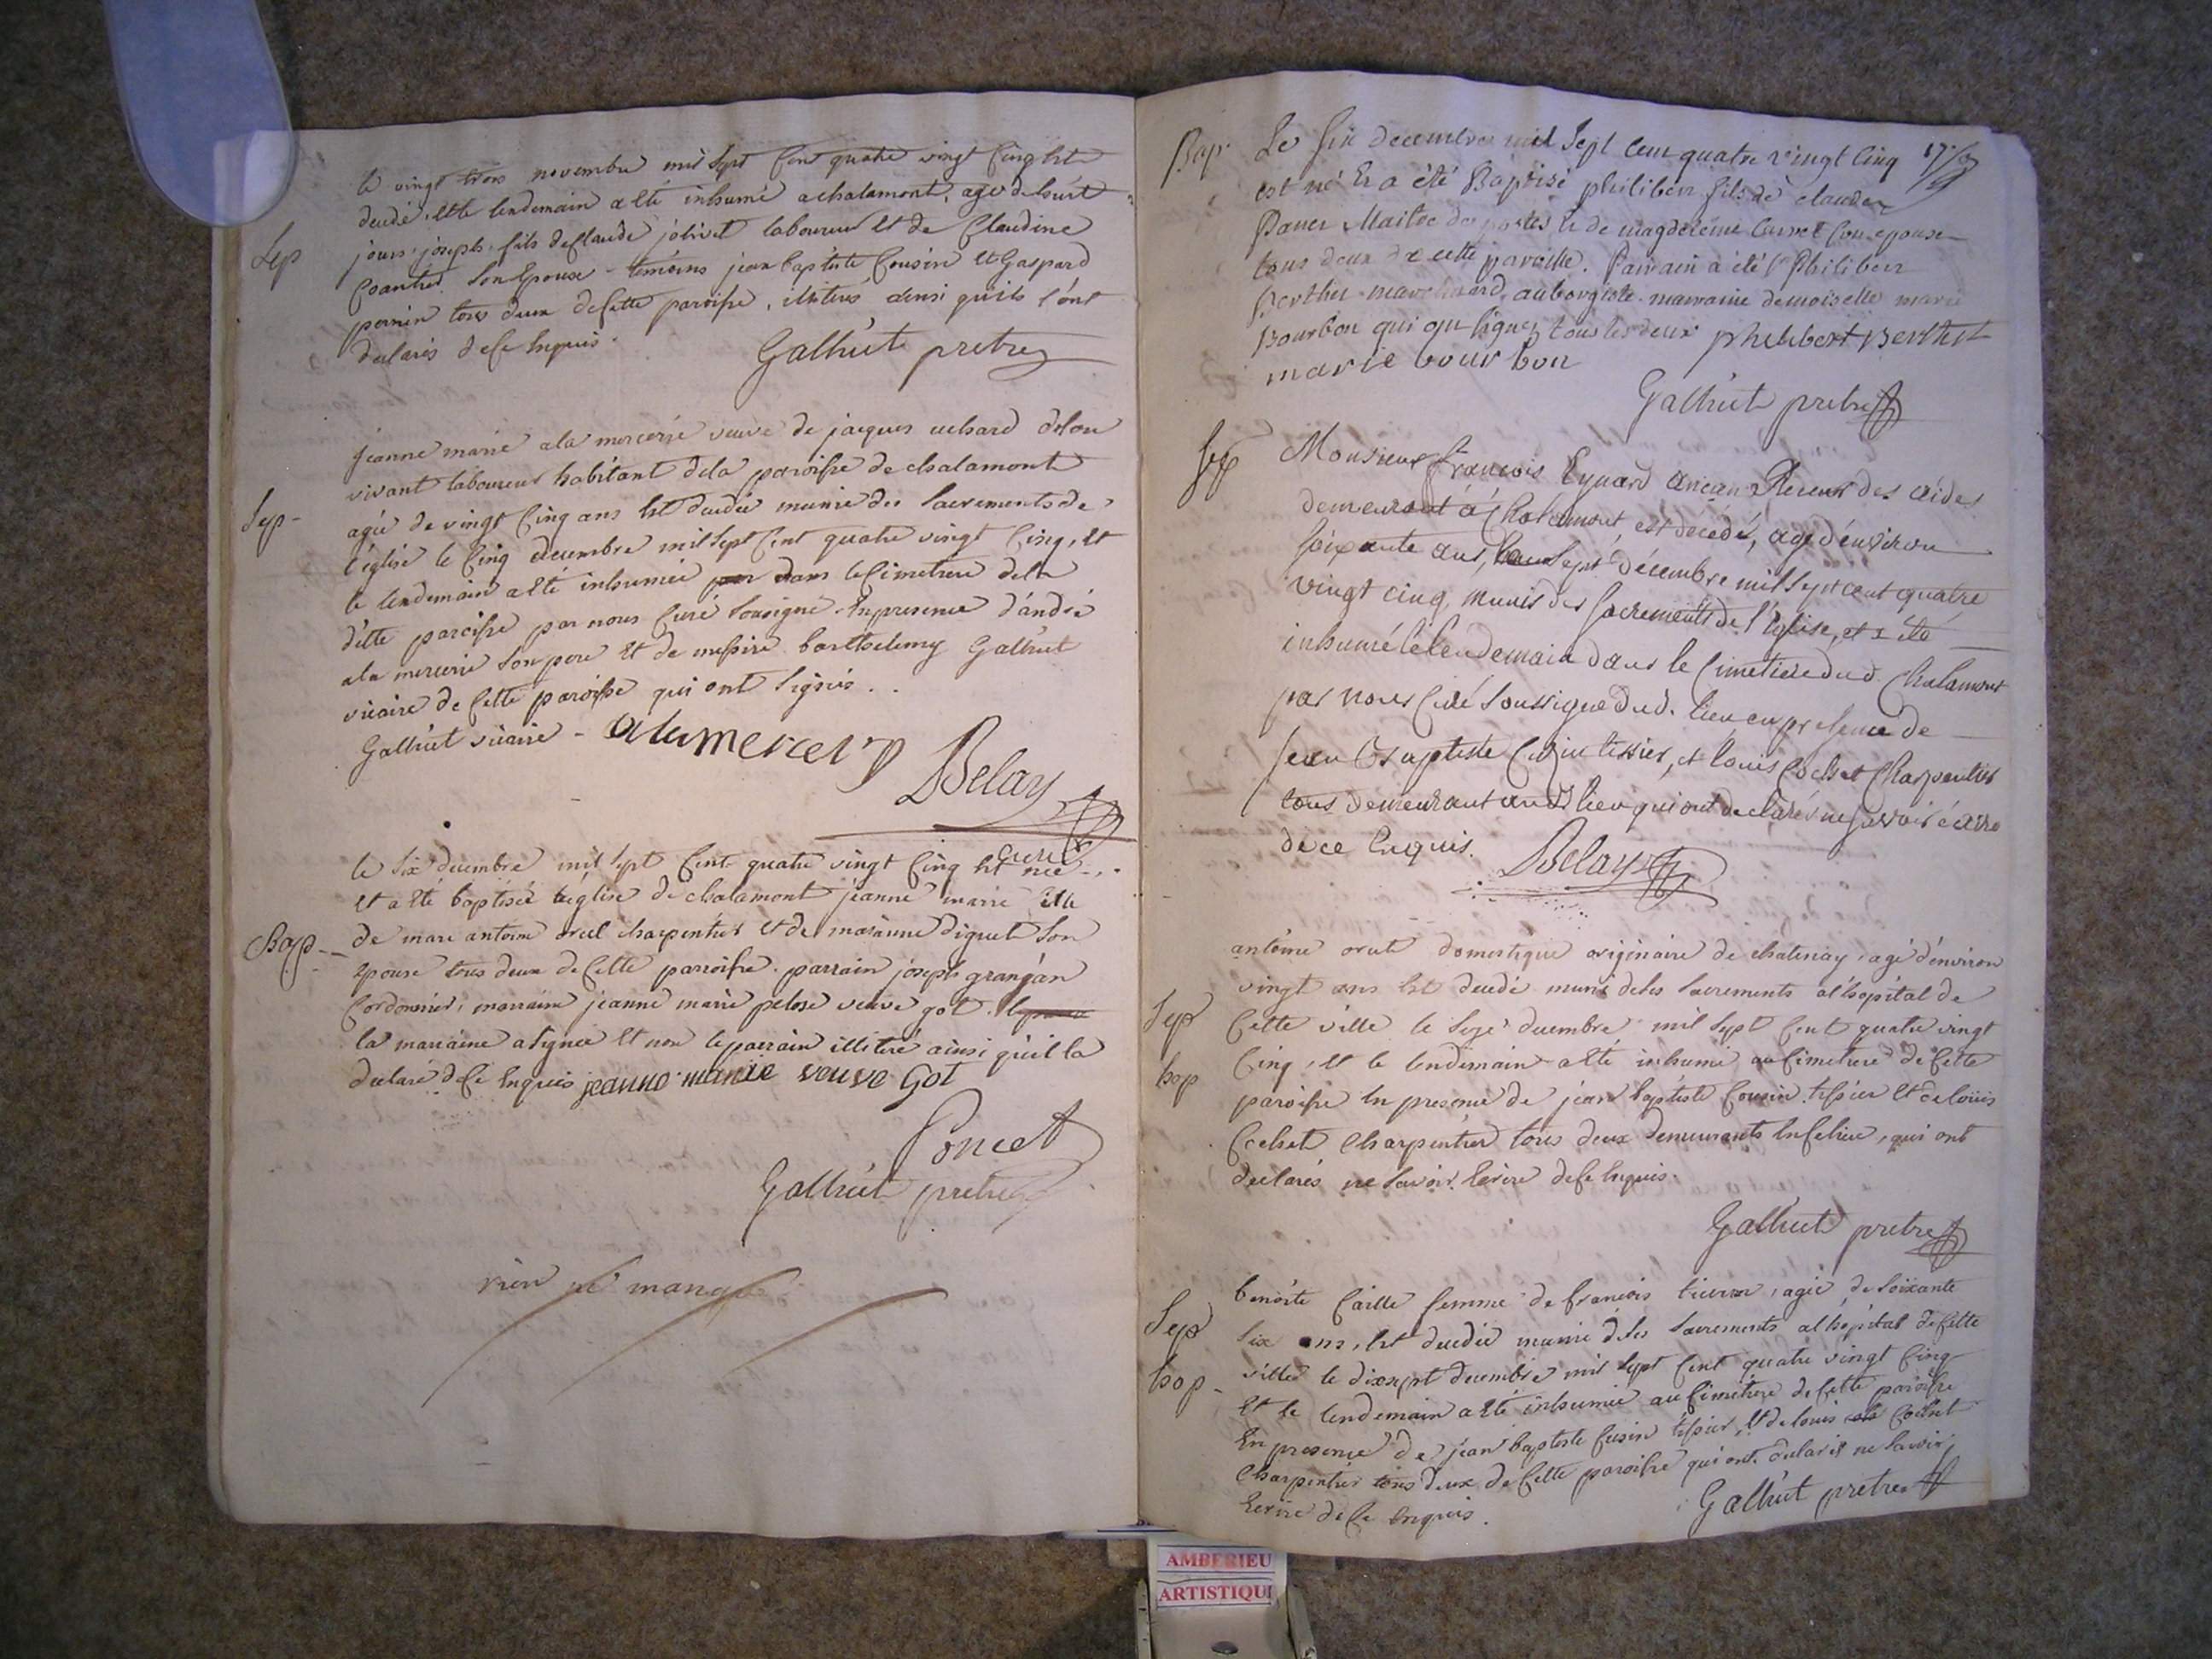 le vingt trois novembre mil sept cent quatre vingt cinq est
decedé et le lendemain a eté inhumé a chalamont, agé de huit
Sep
jours, joseph fils de Claude jolivet laboureur et de Claudine
son epouse temoins jean baptiste Cousin et Gaspard
pernin tous deux de cette paroisse, illiterés ainsi qu'ils l'ont
declarés de ce enquis.
Galhiet pretre
jeanne marie alamercerie veuve de jacques uchard de son
vivant laboureur habitant de la paroisse de chalamont
Sep-
agée de vingt cinq ans est decedée munie des sacrements de
l'église le cinq decembre mil sept cent quatre vingt cinq, et
le lendemain a eté inhumée dans le cimetiere de la
ditte paroisse par nous curé soussigné en presence d'andré
alamercerie son pere et de messire barthelemy Galhiet
vicaire de cette paroisse qui ont signés..
Galhiet vicaire - alamercery
Belay
curé
le six decembre mil sept cent quatre vingt cinq est née
et a eté baptisée eglise de chalamont jeanne marie fille
Bap--
de marc antoine orcel charpentier et de marianne diguet son
epouse tous deux de cette parroisse. parrain joseph granjan
Cordonnier, marraine jeanne marie pelose veuve got.
la marraine a signée et non le parrain illiteré ainsi qu'il l'a
declaré de ce enquis jeanne marie veuve Got
Poncet
Galhiet pretre
rien ne manque
Bap. Le six decembre mil sept cent quatre vingt cinq
est né et a été Baptisé philibert fils de claude
Maitre de postes et de magdeleine son epouse
tous deux de cette paroisse. Parrain a été sr Philibert
Berthet marchand aubergiste. marraine demoiselle marie
Bourbon qui ont signez tous les deux philibert Berthet
marie bourbon
Galhiet pretre
Sep Monsieur François Eynard ancien Receveur des aides
demeurant à Chalamont, est décédé, agé d'environ
soixante ans, le sept décembre mil sept cent quatre
vingt cinq, munis des sacrements de l'église, et a été
inhumé le lendemain dans le cimetiere dud. Chalamont
par nous curé soussigné dud. lieu en presence de
Jean Baptiste Cusin tissier, et louis Cochet charpentier
tous demeurant aud. lieu qui ont declarés ne savoir écrire
de ce enquis.
Belay
antoine orut domestique originaire de chatenay, agé d'environ
vingt ans est decedé muni de ses sacrements a l'hopital de
Sep
cette ville le seze decembre mil sept cent quatre vingt
hop
cinq, et le lendemain a eté inhumé au cimetiere de cette
paroisse en presence de jean baptiste Cousin tissier et de louis
Cochet charpentier tous deux demeurants en ce lieu, qui ont
declarés ne savoir ecrire de ce enquis.
Galhiet pretre
benoite Caille femme de francois, agée de soixante
Sep
six ans, est decedée munie de ses sacrements a l'hopital de cette
hop-
ville le dixsept decembre mil sept cent quatre vingt cinq
et le lendemain a eté inhumée au cimetiere de cette paroisse
en presence de jean baptiste Cusin tissier, et de louis Cochet
charpentier tous deux de cette paroisse qui ont declarés ne savoir
ecrire de ce enquis.
Galhiet pretre
AMBERIEU
ARTISTIQU